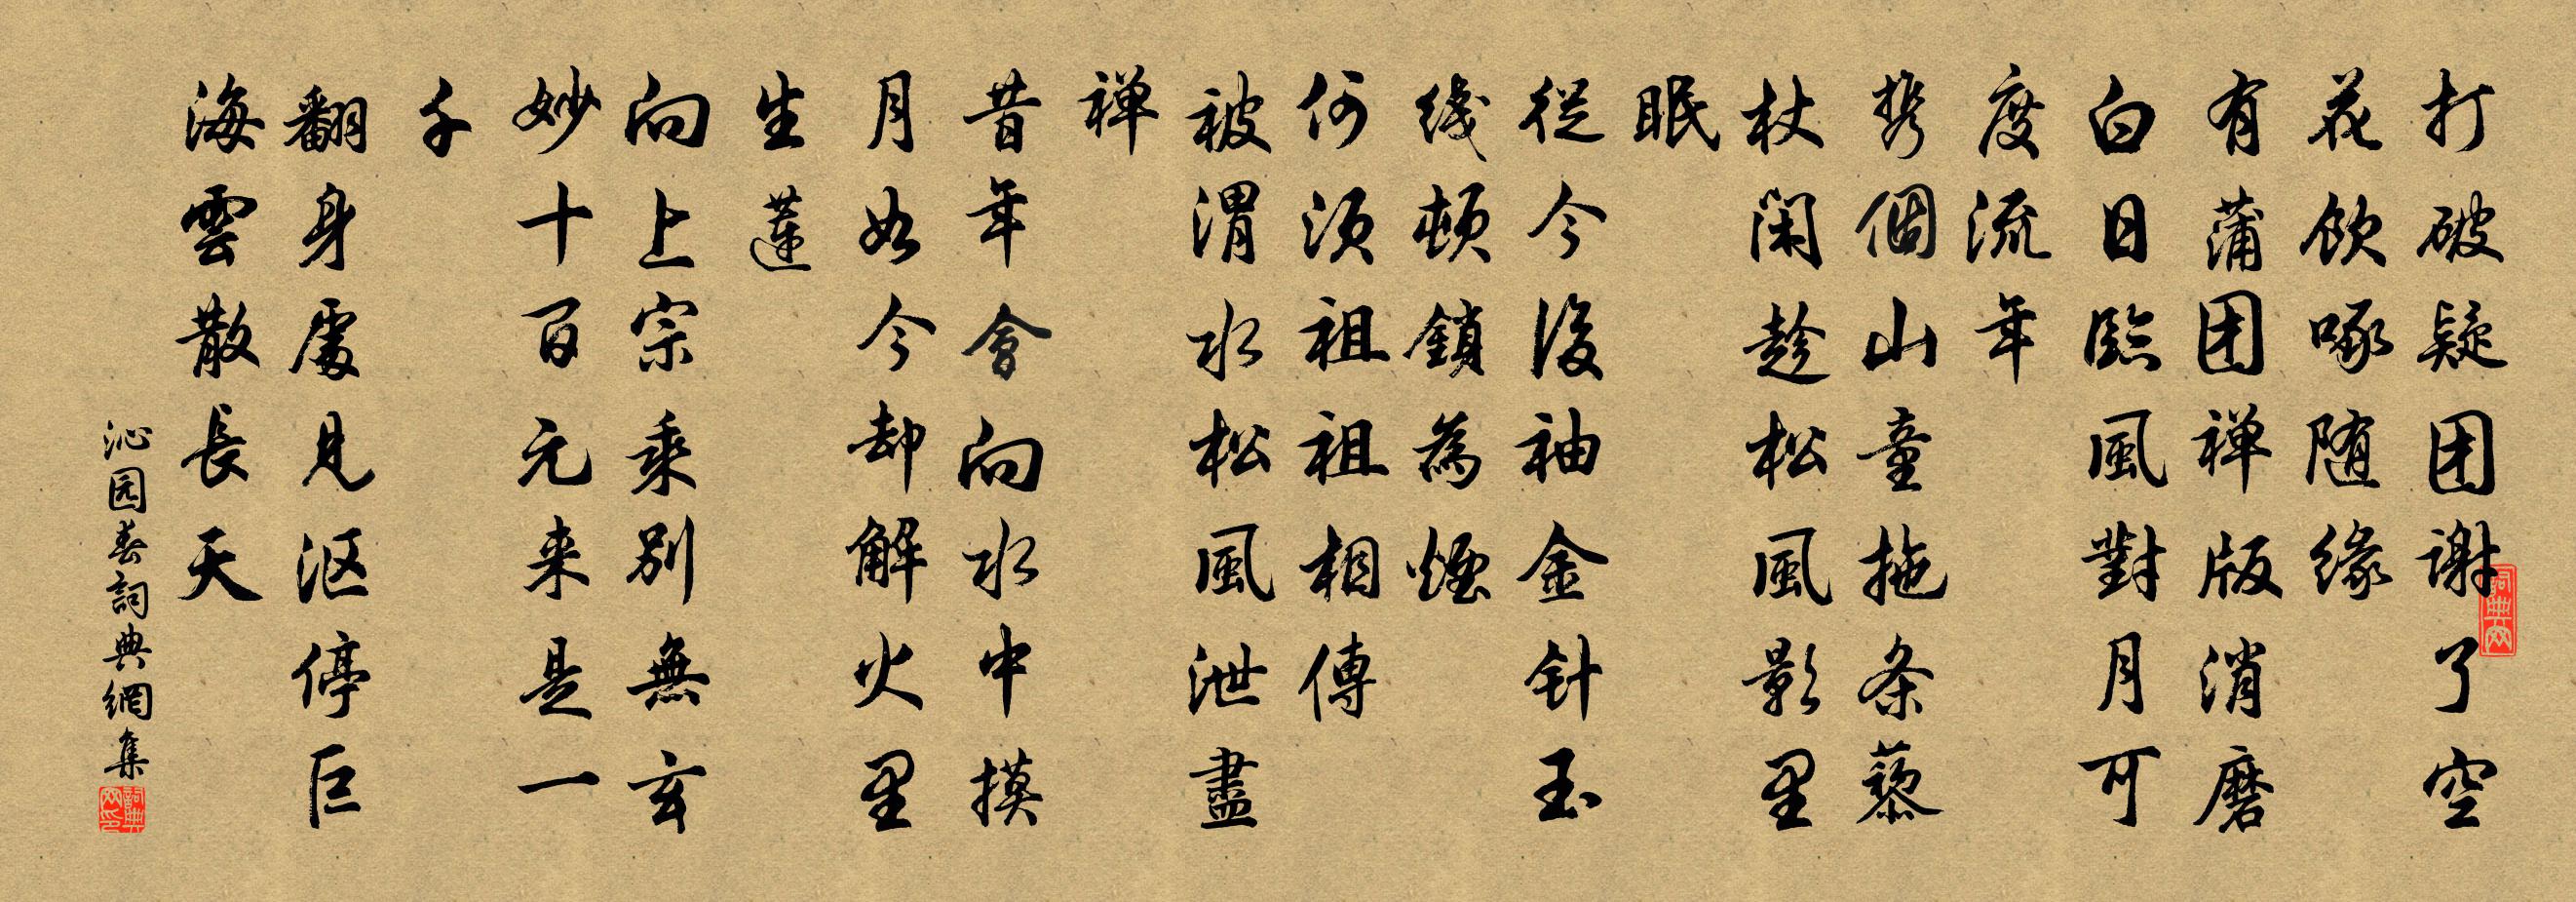 打破疑团谢了空
花饮啄随缘
有蒲团禅版消磨
白日臨風對月可
度流年
携個山童拖条藜
杖闲趁松風影里
眠
從今後袖金针玉
綫頓鎖為煙
何須祖祖相傳
被渭水松風泄盡
禅
昔年會向水中摸
月如今却解火里
生蓮
向上宗乘别無玄
妙十百元来是一
千
翻身處見沤停巨
海雲散長天
沁园春詞典網集
詞典网
詞典网印